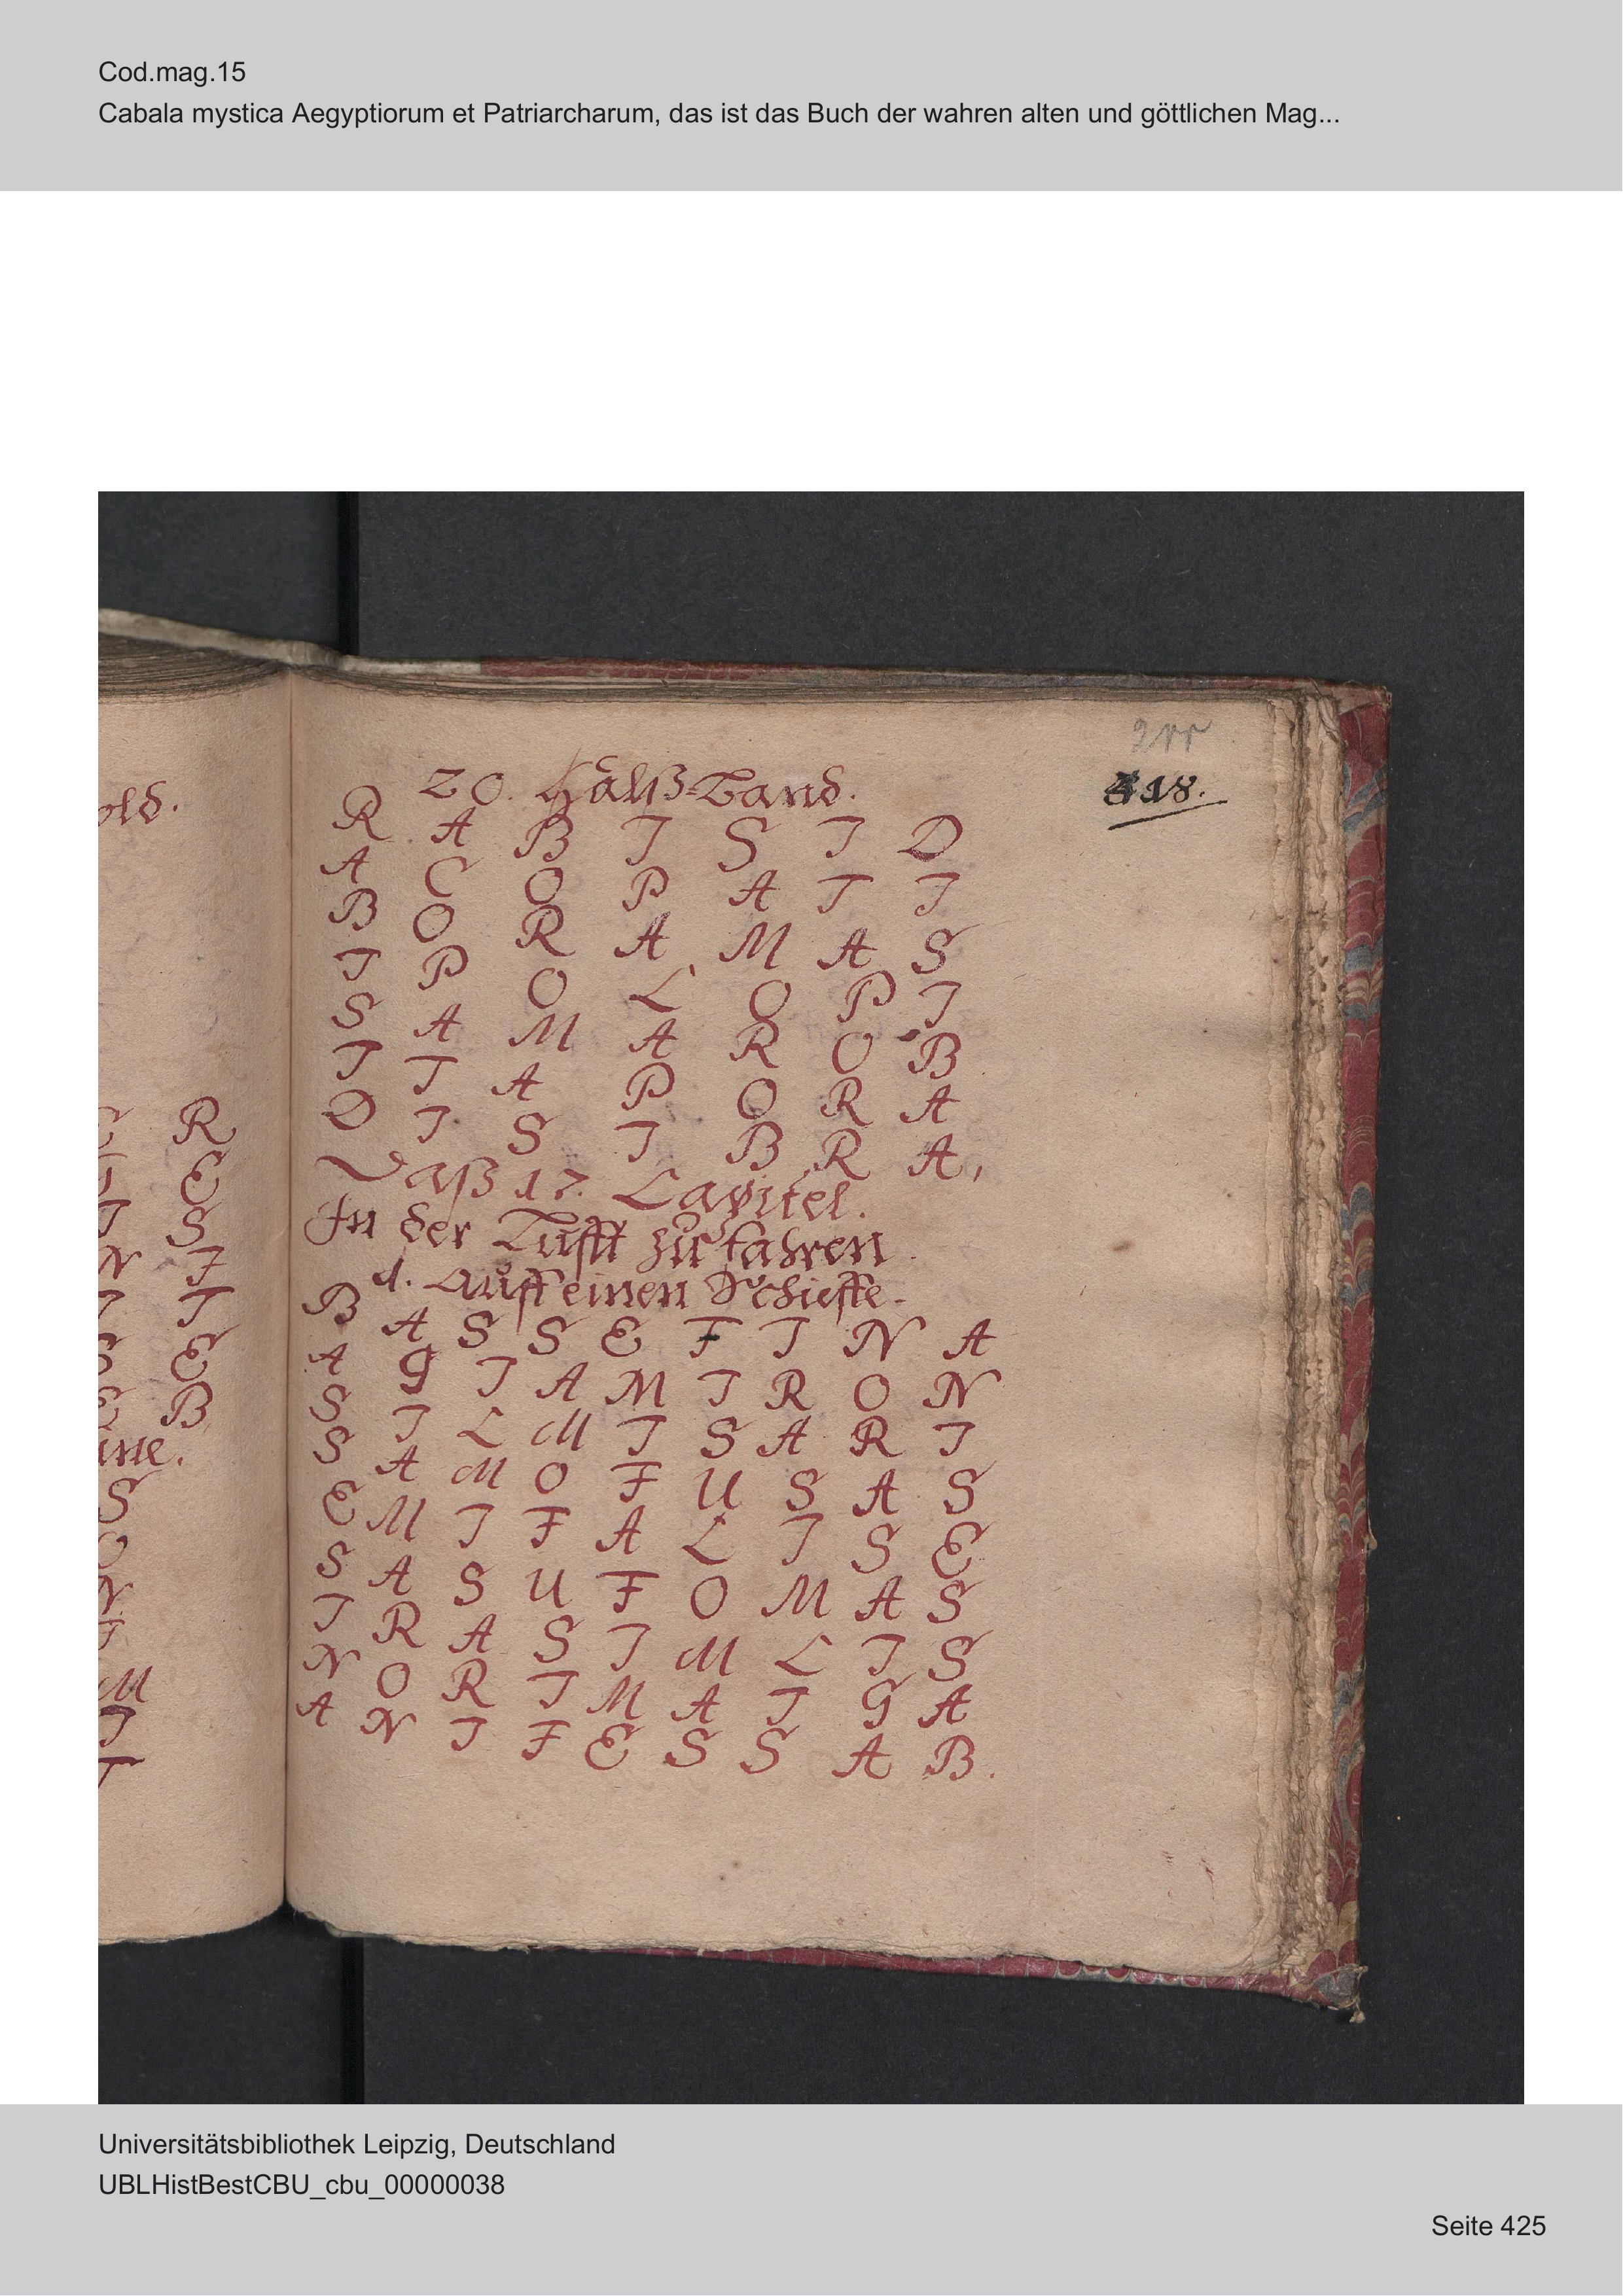 Cod.mag.15
Cabala mystica Aegyptiorum et Patriarcharum, das ist das Buch der wahren alten und göttlichen Mag...
211
418.
old.
20. Halß-Band.
R A B I S I D
A C O P A T I
B O R A M A S
I P O L O P I
S A M A R O B
I T A P O R A
D I S I B R A,
Daß 17. Capitel.
In der Lufft zu fahren
1. Auff einen Schieffe.
B A S S E F I N A
A G I A M I R O N
S I L M I S A R I
S A M O F U S A S
E M I F A L I S E
S A S U F O M A S
I R A S I M L I S
N O R I M A I G A
A N I F E S S A B.
R
E
S
N I
I T
S E
E B
S
M
I
T
Universitätsbibliothek Leipzig, Deutschland
UBLHistBestCBU_cbu_00000038
Seite 425